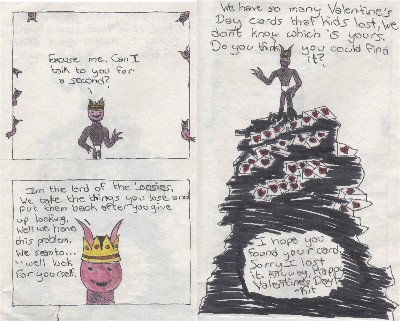 Excuse me. Can I
talk to you for
a second?
Im the lord of the Loosies,
We take the things you lose and
put them back after you give
up looking.
Well we have
this problem.
We seem to...
...well look
for yourself.
We have so many Valentine's
Day cards that kids lost, We
don't know which is yours.
Do you think you could find
it?
I hope you
found your card,
Sorry I lost
it. Anyway, Happy
Valentine's Day!
-Kit